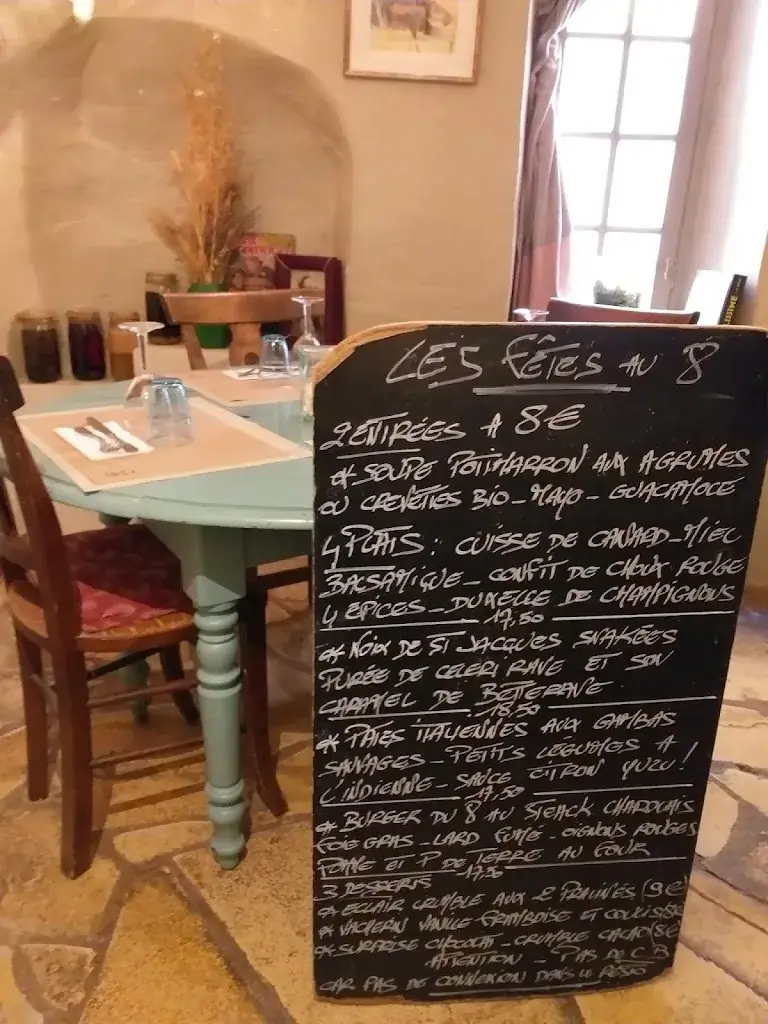 LES FÊTES AU 8
2 ENTRÉES A 8€
* SOUPE POTIMARRON AUX AGRUMES
OU CREVETTES BIO - MAYO - GUACAMOLE
4 PLATS : CUISSE DE CANARD - MIEL
BALSAMIQUE - CONFIT DE CHOUX ROUGE
4 EPICES - DUXELLE DE CHAMPIGNONS
17,50
* NOIX DE ST JACQUES SNAKÉES
PURÉE DE CELERI RAVE ET SON
CARAMEL DE BETTERAVE
18,50
* PATES ITALIENNES AUX GAMBAS
SAUVAGES - PETITS LÉGUMES A
L'INDIENNE - SAUCE CITRON YUZU !
17,50
* BURGER DU 8 AU STEACK CHAROLAIS
FOIE GRAS - LARD FUMÉ - OIGNONS ROUGES
POMME ET P DE TERRE AU FOUR
17,50
3 DESSERTS
* ECLAIR CRUMBLE AUX 2 PRALINÉS (9€
* VACHERIN VANILLE - FRAMBOISE ET COULIS 8€
* SURPRISE CHOCOLAT - CRUMBLE CACAO 8€
ATTENTION - PAS DE C B
CAR PAS DE CONNEXION DANS LE RESTO